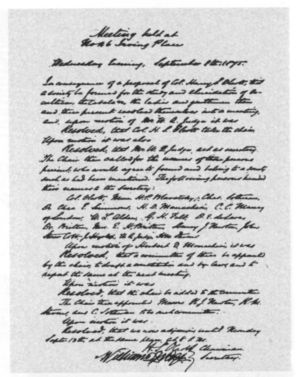 Meeting held at
No 46 Irving Place
Wednesday Evening, September 8th. 1875.
In consequence of a proposal of Col. Henry S. Olcott, that
a society be formed for the study and elucidation of Oc-
cultism the ladies and gentlemen then
and there present resolved themselves into a meeting,
and, upon motion of Mr. W. Q. Judge it was
Resolved, that Col. H. S. Olcott take the chair.
Upon motion it was also
Resolved, that Mr. W. Q. Judge, act as secretary.
The Chair then called for the names of those persons
present, who would agree to found and belong to a society
such as had been mentioned. The following persons handed
their names to the Secretary:
Col. Olcott, Mme. H. P. Blavatsky, Chas. Sotheran,
Dr. Chas. E. Simmons, H. D. Monachesi, C. C. Massey
of London, W. L. Alden, G. H. Felt, D. E. de Lara,
Dr. Britten, Mrs. E. H. Britten, Henry J. Newton, John
Storer Cobb, J. Hyslop, W. Q. Judge, H. M. Stevens.
Upon motion of Herbert D. Monachesi it was
Resolved, that a committee of three be appointed
by the chair, to draft a constitution and by laws and to
report the same at the next meeting.
Upon motion it was
Resolved, that the chair be added to the Committee.
The Chair then appointed Messrs. H. J. Newton, H. M.
Stevens, and C. Sotheran to be such committee.
Upon motion it was
Resolved, that we now adjourn until Monday
Sept. 13th at the same place, at 8 P. M.
Chairman
William Q. Judge Secretary.